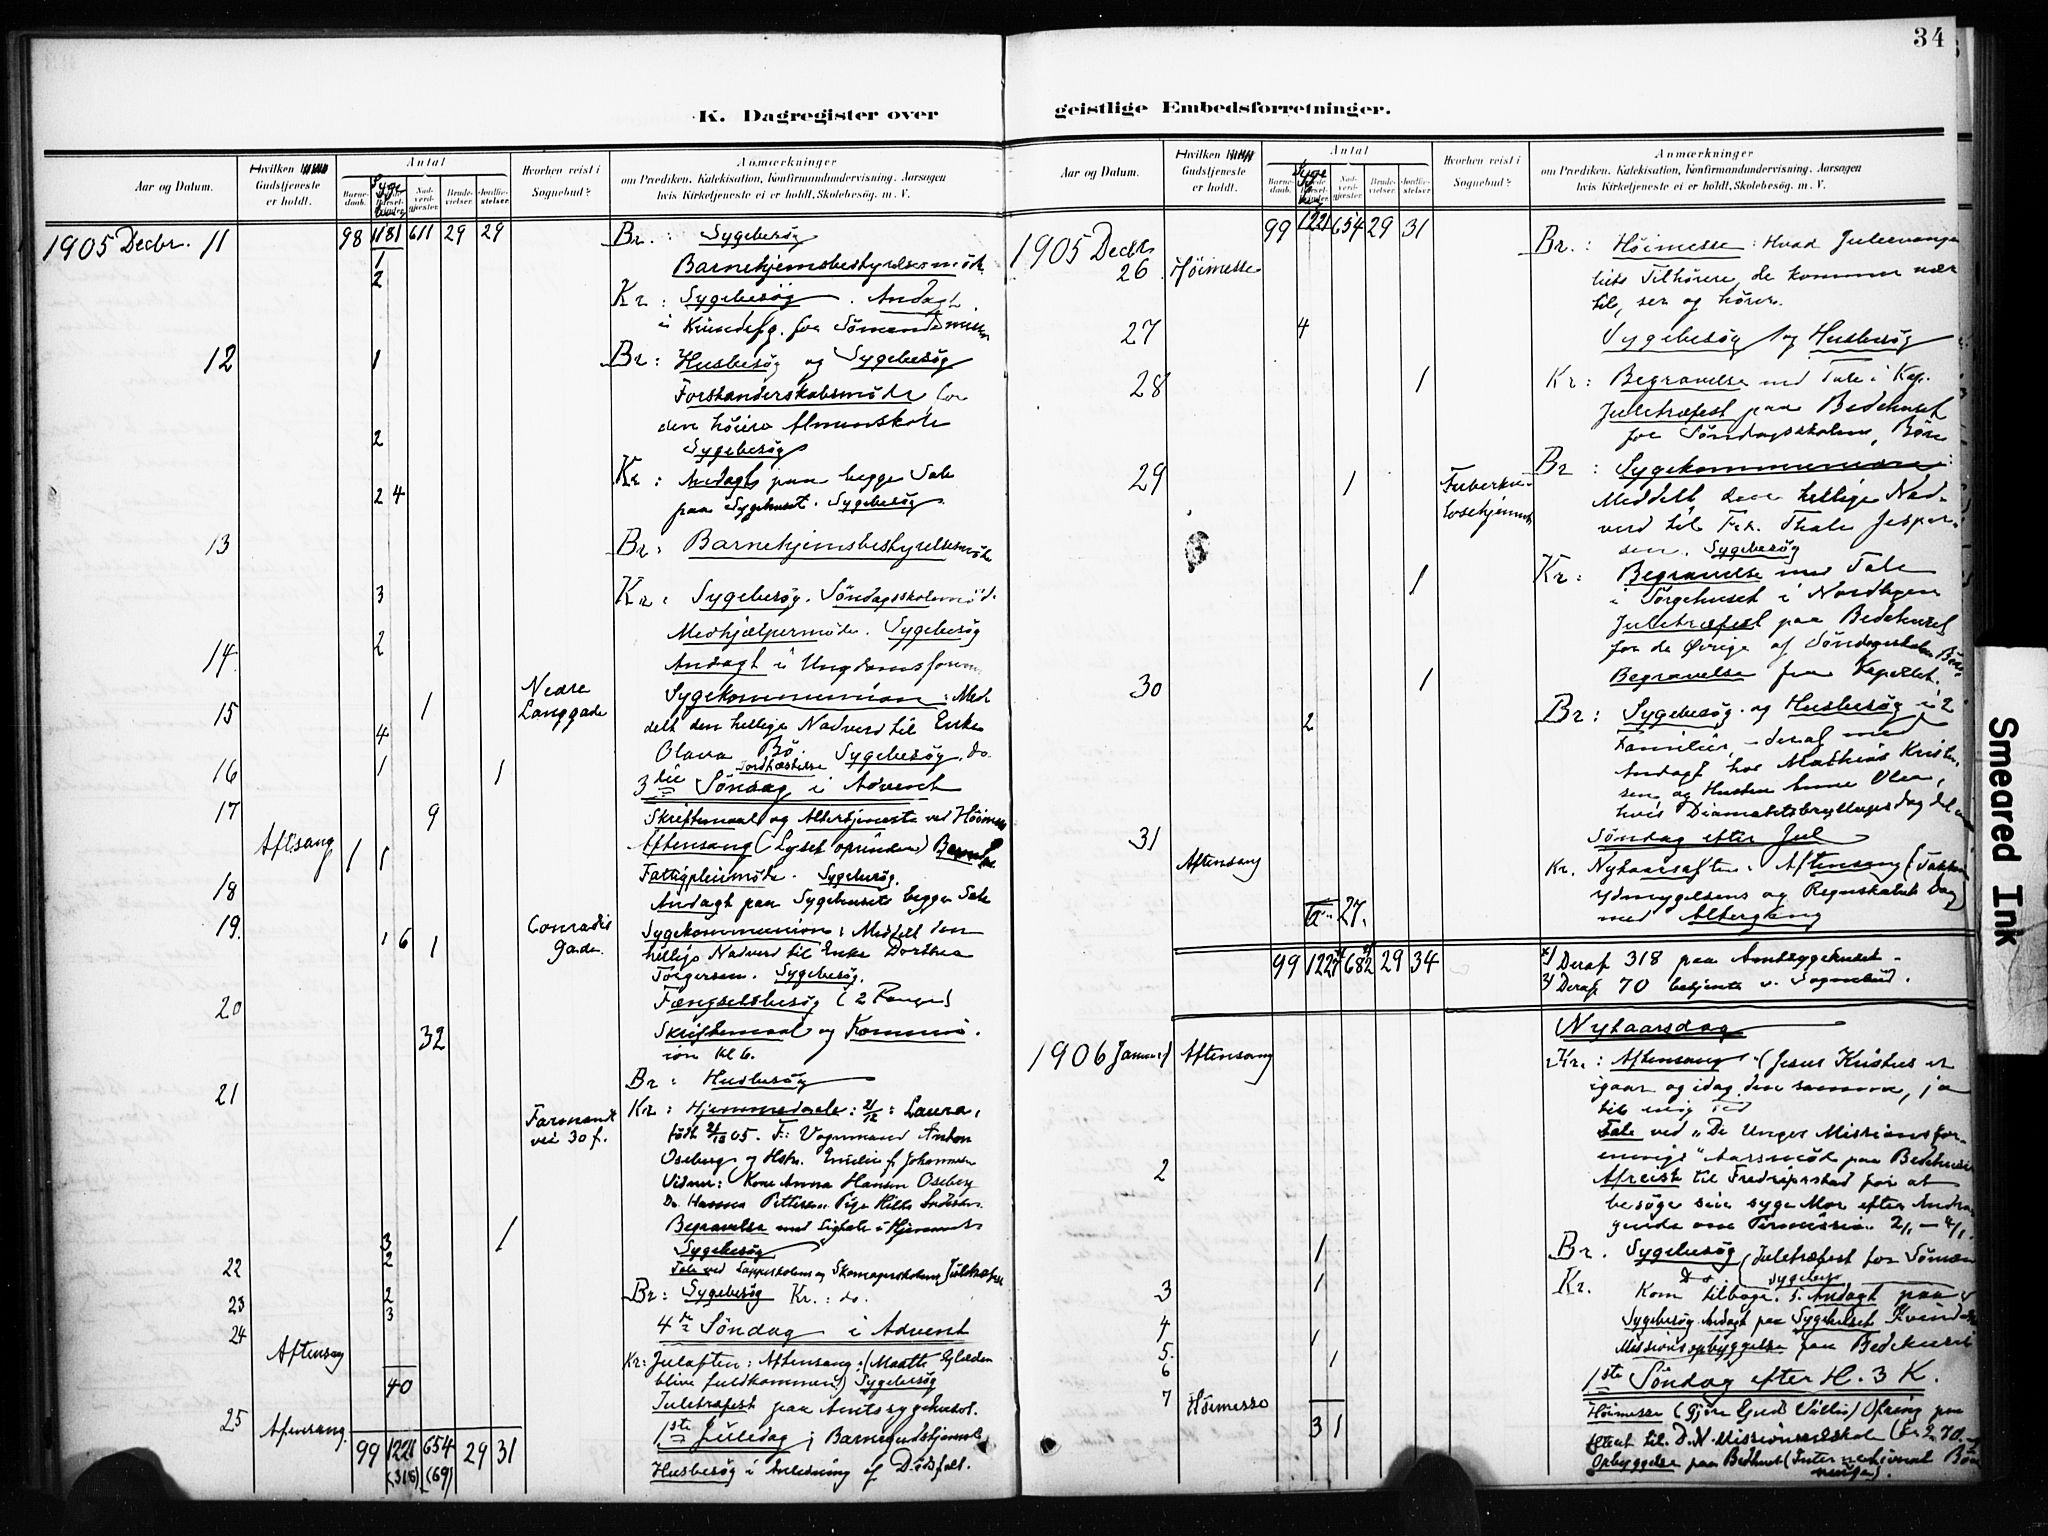 34
K. Dagregister over
geistlige Embedsforretninger.
Aar og Datum.
Hvilken
Gudstjeneste
er holdt.
Antal
Barne-
daab.
Syge
besøg
Nad-
verd-
gjester.
Brude-
vielser.
Jordfæ-
stelser.
Hvorhen reist i
Sognebud?
Anmærkninger
om Prædiken, Katekisation, Konfirmandundervisning, Aarsagen
hvis Kirketjeneste ei er holdt, Skolebesøg. m. V.
1905 Decbr. 11
98 1181 611 29 29
Br.: Sygebesøg
Barnehjemsbestyrelsesmøde
1
2
Kr: Sygebesøg. Andagt
i Kvindefg. for Sømandsmission
12
1
Br: Husbesøg og Sygebesøg
Forstanderskabsmøde for
den høiere Almenskole
2
Sygebesøg
Kr: Andagt paa begge Sale
2 4
paa Sygehuset. Sygebesøg
13
Br: Barnehjemsbestyrelsesmøde
3
Kr: Sygebesøg. Søndagsskolemøde
2
Medhjælpermøde. Sygebesøg
14
Andagt i Ungdomsforen
15
1
Nedre
Langgade
Sygekommunion: Med
delt den hellige Nadverd til Enke
4
Olava Bø. Sygebesøg. do
16
1
1
Jordfæstelse
3die Søndag i Advent
17
9
Skriftemaal og Altertjeneste ved Høimesse
Aftsang
1 1
Aftensang (Lyset oprinder) Barnedaab
Fattigpleiemøde. Sygebesøg.
18
Andagt paa Sygehusets begge Sale
19.
1 6 1
Conradis
gade.
Sygekommunion: Meddelt den
hellige Nadverd til Enke Dorthea
Torgersen. Sygebesøg.
20
Fængselsbesøg (2 Fanger)
32
Skriftemaal og Kommun-
ion Kl 6.
Br: Husbesøg
21
Farmand
vei 30 f.
Kr: Hjemmedaab: 21/12: Laura,
født 21/12 05. F: Vognmand Anton
Oseberg og Hstr. Emilie f. Johannsen
Vidner: Kone Anna Hansen Oseberg
Do Hanna Pettersen Pige Hilda
1
Begravelse med Ligtale i Hjemmet
3
Sygebesøg
22
2
Tale ved Suppeskolens og Skomagerskolens Juletræfest
23
2
Br: Sygebesøg Kr.: do.
3
24
4de Søndag i Advent
Aftensang
Kr: Juleaften: Aftensang: (Maatte Glæden
blive fuldkommen) Sygebesøg
40
Juletræfest paa Amtssygehuset.
25
Aftensang.
1ste Juledag i Barnegudstjeneste
99 1221 654 29 31
(318) (69)
Husbesøg i Anledning af Dødsfald.
Aar og Datum.
Hvilken
Gudstjeneste
er holdt.
Antal
Barne-
daab.
Syge
besøg
Nad-
verd-
gjester.
Brude-
vielser.
Jordfæ-
stelser.
Hvorhen reist i
Sognebud?
Anmærkninger
om Prædiken, Katekisation, Konfirmandundervisning, Aarsagen
hvis Kirketjeneste ei er holdt, Skolebesøg. m. V.
99 1221 654 29 31
1905 Decbr.
26
Høimesse
Br.: Høimesse: Hvad Juleevange
liets Tilhørere, de kommer nær
til, ser og hører.
27
4
Sygebesøg og Husbesøg
28
1
Kr: Begravelse med Tale i Kap.
Juletræfest paa Bedehuset
for Søndagsskolens Børn
29
1
Tuberku-
losehjemmet
Br: Sygekommunion:
Meddelt den hellige Nad-
verd til Frk. Thale Jesper-
sen. Sygebesøg
1
Kr: Begravelse med Tale
i Sørgehuset i Nordbyen
Juletræfest paa Bedehuset
for de Øvrige af Søndagsskolens Børn
30
1
Begravelse fra Kapellet.
2
Br: Sygebesøg og Husbesøg i 2
Familier, - deraf med
Andagt hos Mathias Kristen-
sen og Hustru Anne Olea,
hvis Diamantsbryllupsdag det
31
Søndag efter Jul
Aftensang
Kr. Nytaarsaften: Aftensang (Takkens
Ydmygelsens og Regnskabets Dag)
6 27.
med Altergang
99 1227 682 29 34
1) Deraf 318 paa Amtssygehuset -
2) Deraf 70 betjente v. Sognebud.
Nytaarsdag
1906 Januar 1
Aftensang
Kr.: Aftensang: (Jesus Kristus er
igaar og idag den samme, ja
til evig Tid
Tale ved "De Unges Missionsfor-
enings" Aarsmøde paa Bedehuset
2
Afreist til Fredriksstad for at
besøge sin syge Mor efter Andra
gende om Permission 2/1 - 4/1
1
Br. Sygebesøg (Juletræfest for Sømæn
3
1
Do Sygebesøg
Kr. Kom tilbage. 5. Andagt paa
4
Sygebesøg. Andagt paa Sygehuset Kvind
5.
1
Missionsopbyggelse paa Bedehuset
6
1
1ste Søndag efter H. 3 K.
7
Høimesse
Høimesse (Gjøre Guds Villie) Ofring paa
3 1
Alteret til D. N. Missionsselskab (Kr 270.
Opbyggelse paa Bedehuset (International Bøn
neuge).
Smeared Ink